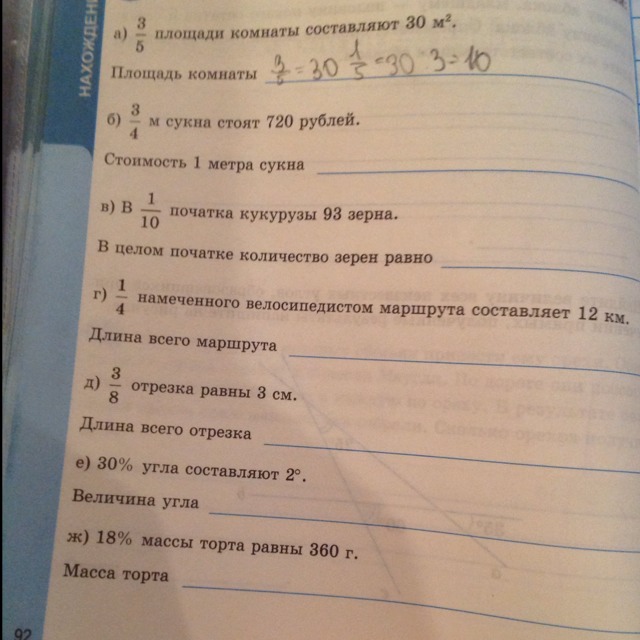 НАХОЖДЕН
а) 3/5 площади комнаты составляют 30 м².
Площадь комнаты 3/5 = 30 1/5 = 30 : 3 = 10
б) 3/4 м сукна стоят 720 рублей.
Стоимость 1 метра сукна
в) В 1/10 початка кукурузы 93 зерна.
В целом початке количество зерен равно
г) 1/4 намеченного велосипедистом маршрута составляет 12 км.
Длина всего маршрута
д) 3/8 отрезка равны 3 см.
Длина всего отрезка
е) 30% угла составляют 2°.
Величина угла
ж) 18% массы торта равны 360 г.
Масса торта
92